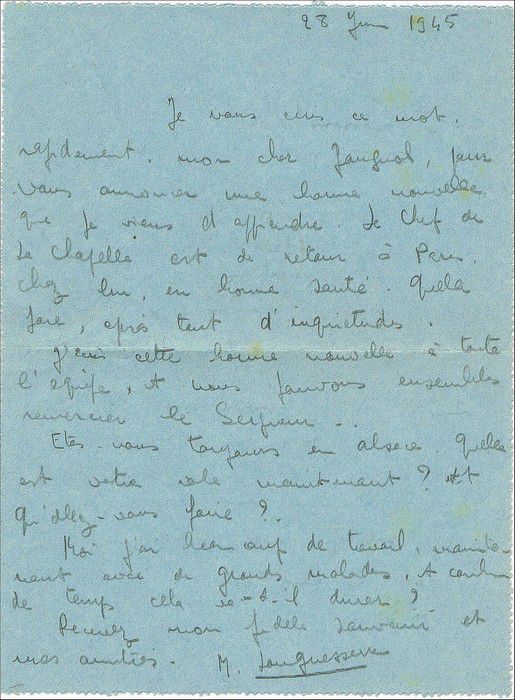 28 Juin 1945
Je vous écris ce mot,
rapidement, mon cher Jauguol, pour
vous annoncer une bonne nouvelle
que je viens d'apprendre. Le Chef de
La Chapelle est de retour à Paris,
chez lui, en bonne santé. Quelle
joie, après tant d'inquiétudes.
J'écris cette bonne nouvelle à toute
l'équipe, et nous pouvons ensembles
remercier le Seigneur...
Etes-vous toujours en alsace. Quelle
est votre rôle maintenant ? Et
qu'allez-vous faire ?
Moi j'ai beaucoup de travail, mainte-
nant avec de grands malades, et combien
de temps cela va-t-il durer ?
Recevez mon fidèle souvenir et
mes amitiés. M.